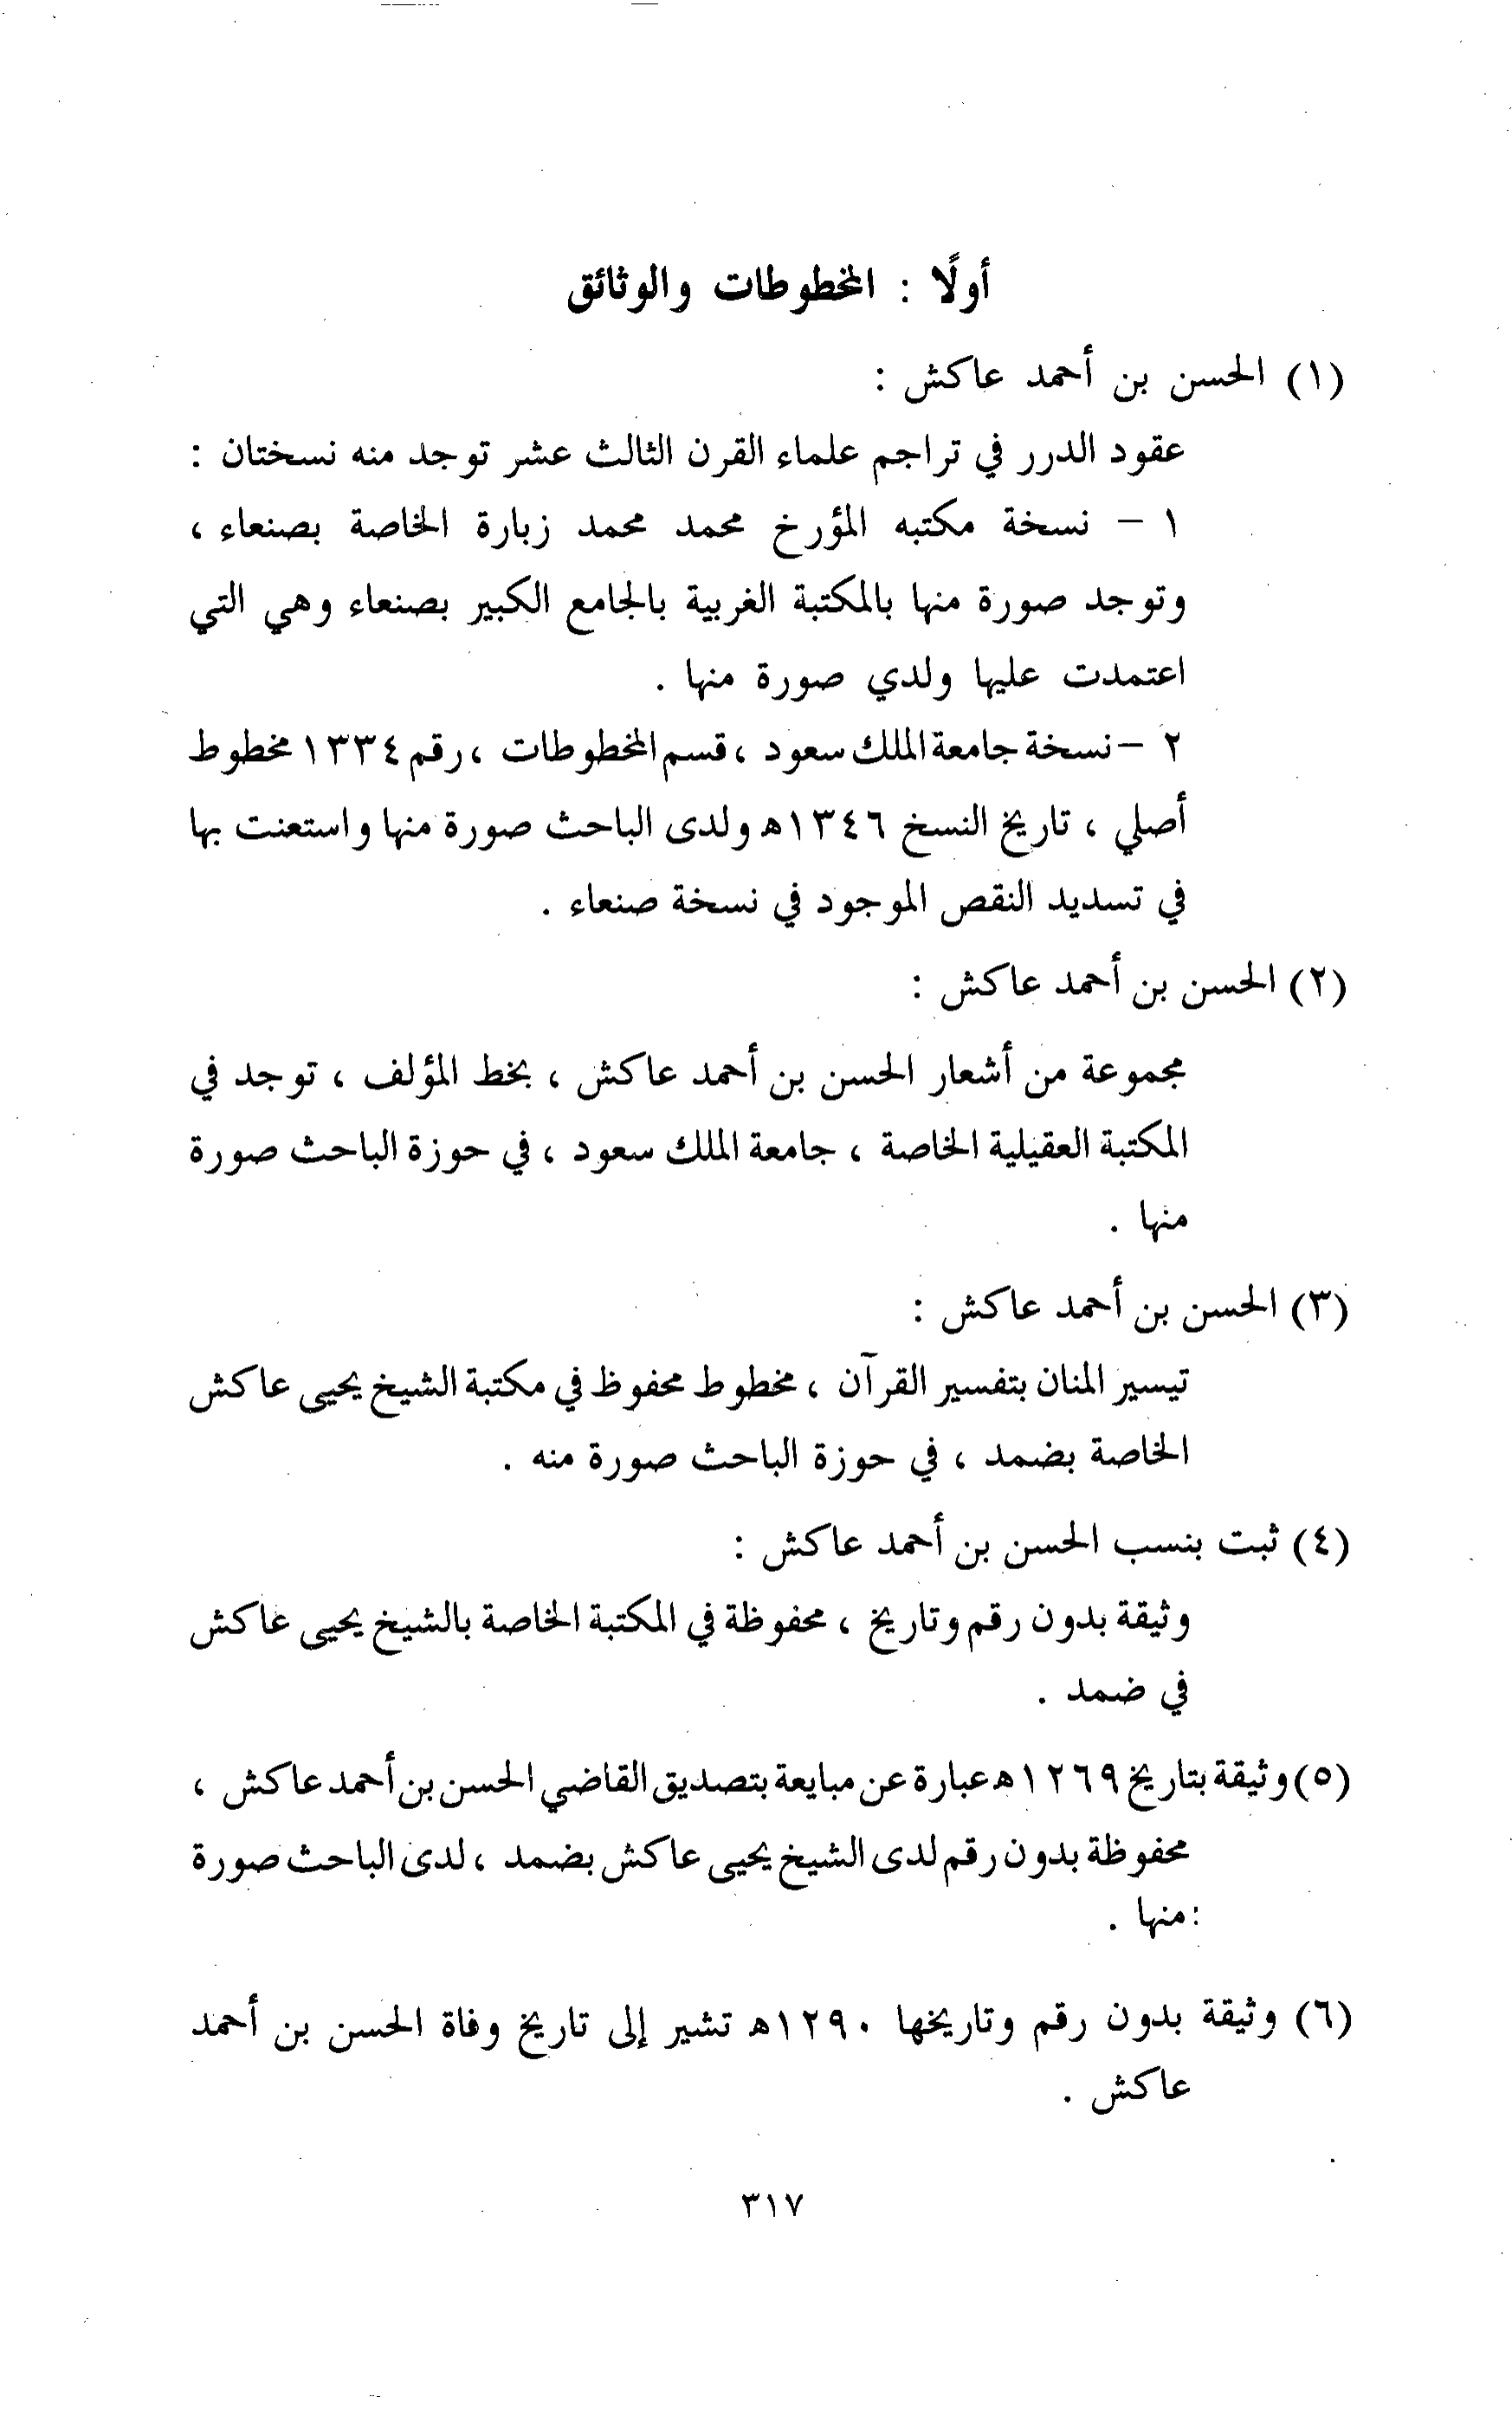 أولًا : المخطوطات والوثائق
(١) الحسن بن أحمد عاكش :
عقود الدرر في تراجم علماء القرن الثالث عشر توجد منه نسختان :
١ – نسخة مكتبه المؤرخ محمد محمد زبارة الخاصة بصنعاء ،
وتوجد صورة منها بالمكتبة الغربية بالجامع الكبير بصنعاء وهي التي
اعتمدت عليها ولدي صورة منها .
٢ – نسخة جامعة الملك سعود ، قسم المخطوطات ، رقم ١٣٣٤ مخطوط
أصلي ، تاريخ النسخ ١٣٤٦ه ولدى الباحث صورة منها واستعنت بها
في تسديد النقص الموجود في نسخة صنعاء .
(٢) الحسن بن أحمد عاكش :
مجموعة من أشعار الحسن بن أحمد عاكش ، بخط المؤلف ، توجد في
المكتبة العقيلية الخاصة ، جامعة الملك سعود ، في حوزة الباحث صورة
منها .
(٣) الحسن بن أحمد عاكش :
تيسير المنان بتفسير القرآن ، مخطوط محفوظ في مكتبة الشيخ يحيى عاكش
الخاصة بضمد ، في حوزة الباحث صورة منه .
(٤) ثبت بنسب الحسن بن أحمد عاكش :
وثيقة بدون رقم وتاريخ ، محفوظة في المكتبة الخاصة بالشيخ يحيى عاكش
في ضمد .
(٥) وثيقة بتاريخ ١٢٦٩ه عبارة عن مبايعة بتصديق القاضي الحسن بن أحمد عاكش ،
محفوظة بدون رقم لدى الشيخ يحيى عاكش بضمد ، لدى الباحث صورة
منها .
(٦) وثيقة بدون رقم وتاريخها ١٢٩٠ه تشير إلى تاريخ وفاة الحسن بن أحمد
عاكش .
٣١٧